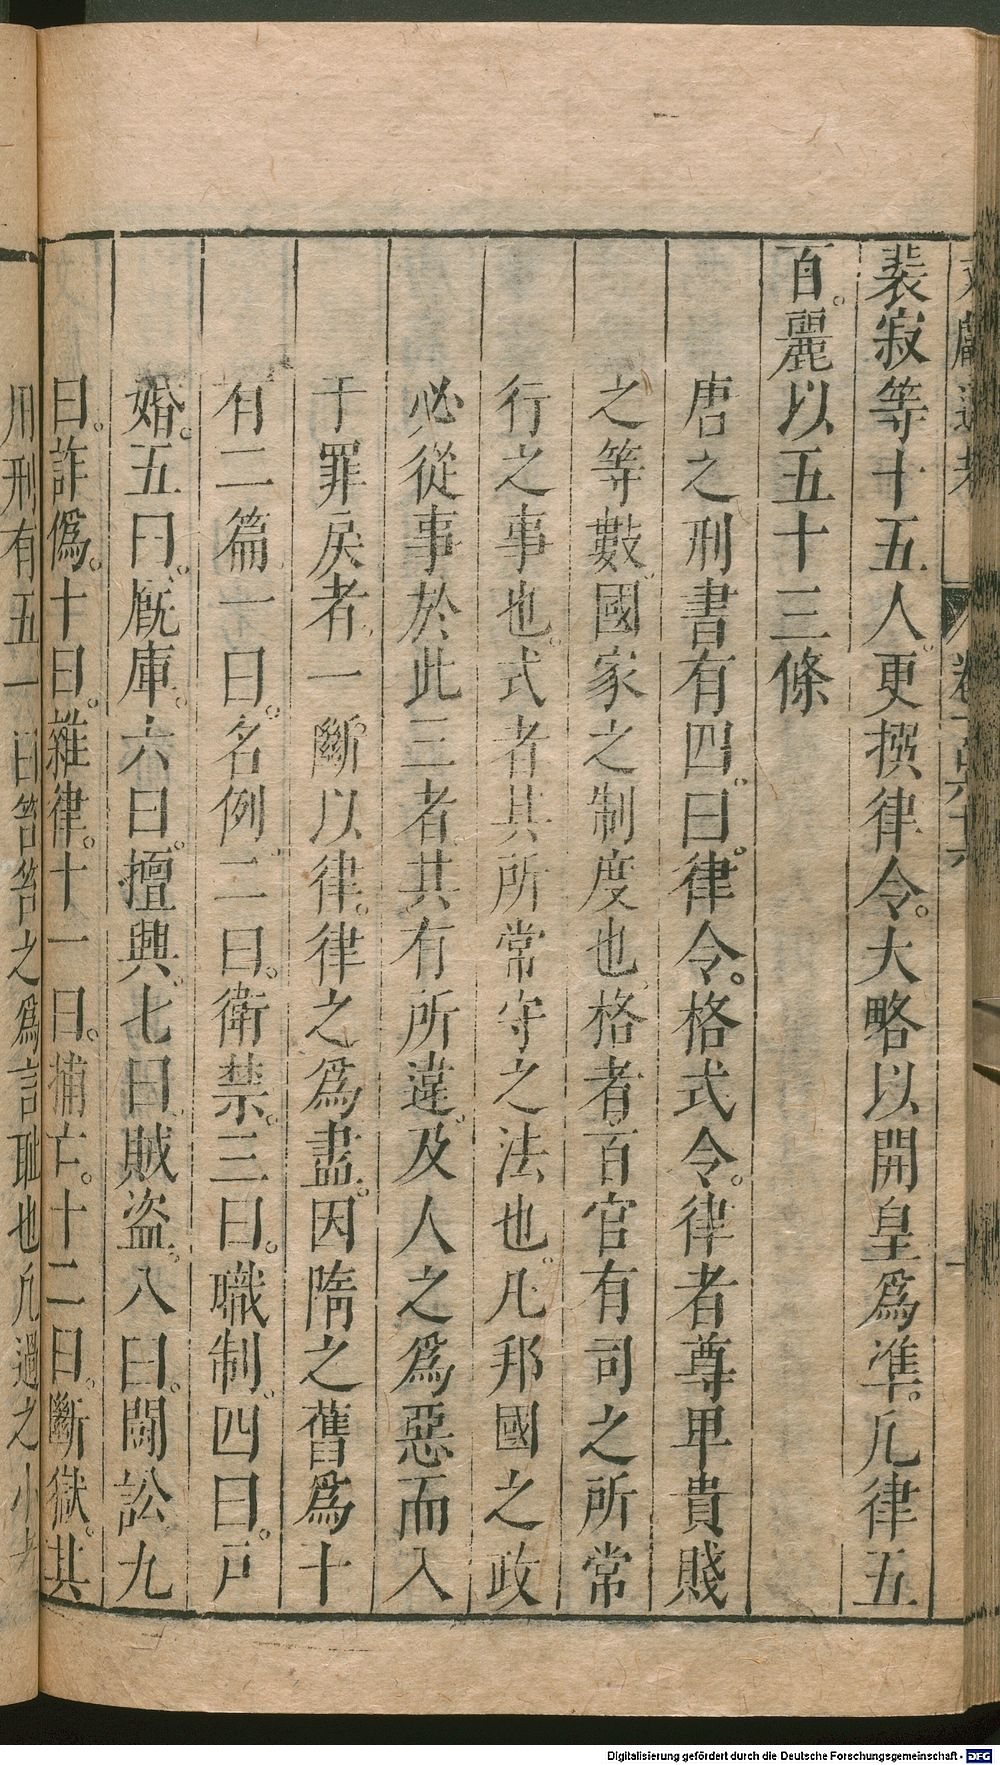 裴寂等十五人。更撰律令。大略以開皇爲準。凡律五
百。麗以五十三條
唐之刑書有四。曰。律令。格式令。律者尊卑貴賤
之等數。國家之制度也。格者。百官有司之所常
行之事也。式者其所常守之法也。凡邦國之政
必從事於此三者。其有所違。及人之爲惡而入
于罪戾者。一斷以律。律之爲書。因隋之舊爲十
有二篇。一曰。名例。二曰。衛禁。三曰。職制。四曰。戸
婚。五曰。厩庫。六曰。擅興。七曰。賊盗。八曰。鬪訟九
曰。詐僞。十曰。雜律。十一曰。捕亡。十二曰。斷獄。其
用刑有五一曰笞笞之爲言耻也凡過之小者
Digitalisierung gefördert durch die Deutsche Forschungsgemeinschaft - DFG